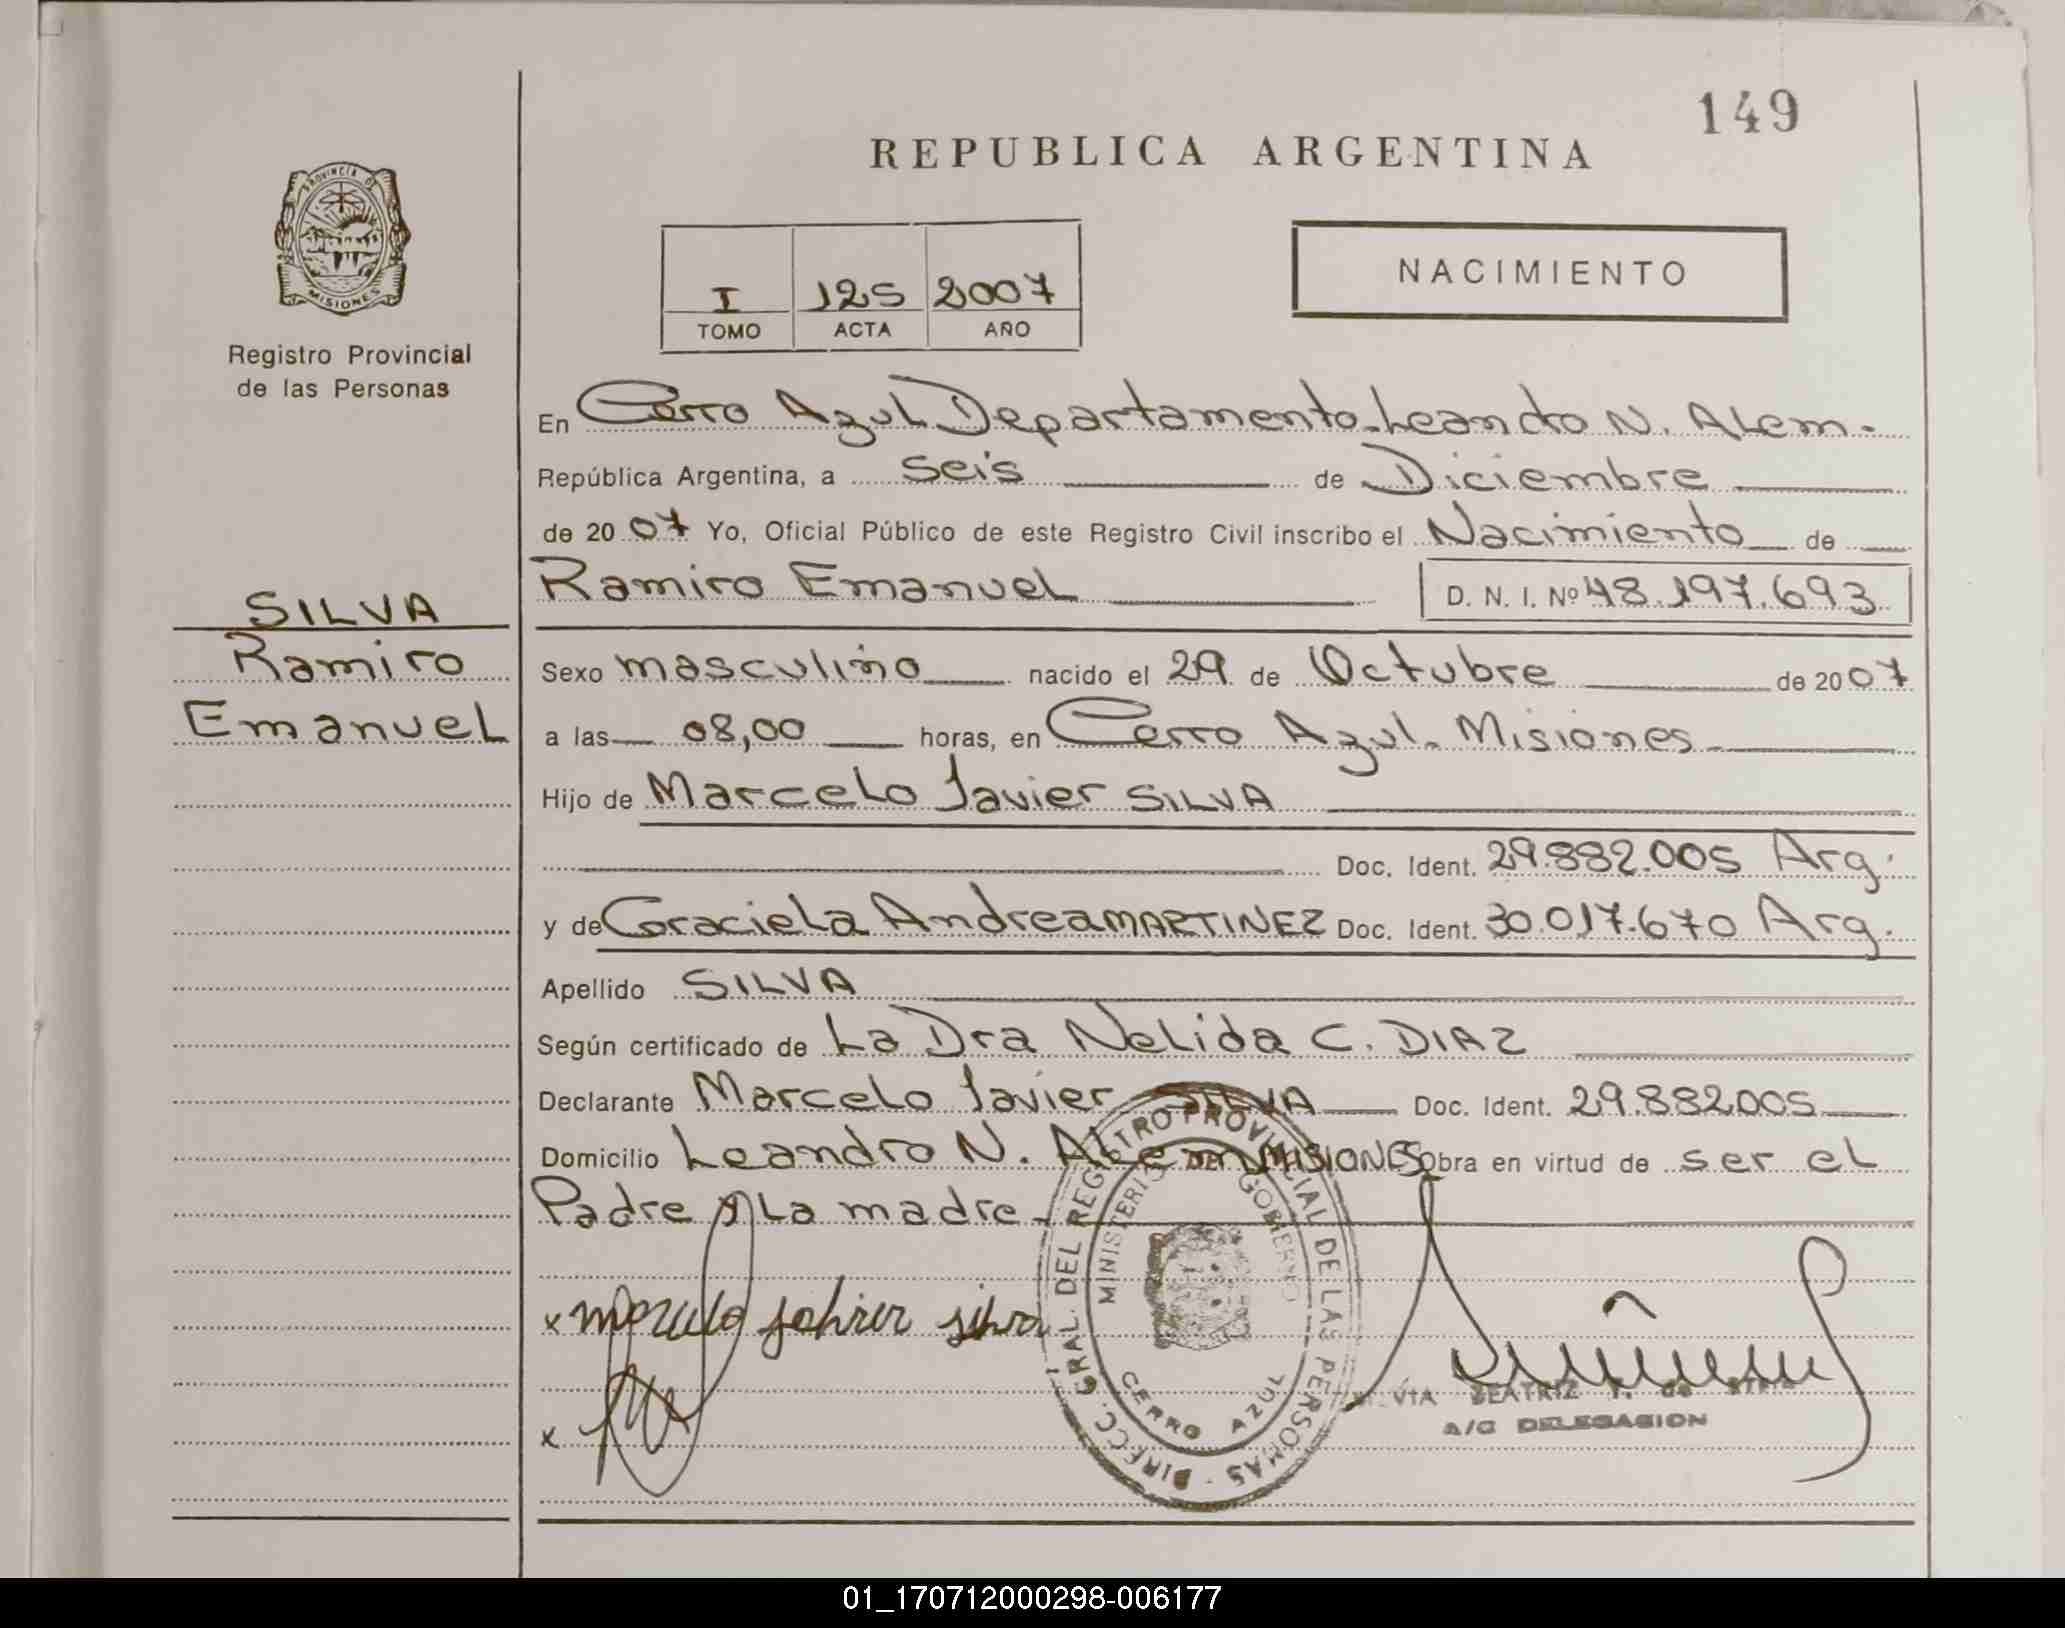 149
REPUBLICA ARGENTINA
PROVINCIA DE
MISIONES
Registro Provincial
de las Personas
I 125 2007
TOMO ACTA AÑO
NACIMIENTO
SILVA
Ramiro
Emanuel
En Cerro Azul Departamento Leandro N. Alem.
República Argentina, a seis de Diciembre
de 2007 Yo, Oficial Público de este Registro Civil inscribo el Nacimiento de
Ramiro Emanuel D. N. I. Nº 48.197.693
Sexo masculino nacido el 29 de Octubre de 2007
a las 08,00 horas, en Cerro Azul. Misiones
Hijo de Marcelo Javier SILVA
Doc. Ident. 29.882.005 Arg.
y de Graciela Andrea MARTINEZ Doc. Ident. 30.017.670 Arg.
Apellido SILVA
Según certificado de La Dra Nelida C. DIAZ
Declarante Marcelo Javier SILVA Doc. Ident. 29.882.005
Domicilio Leandro N. Alem MISIONES Obra en virtud de ser el
Padre y La madre
x Marcelo Javier Silva
x
DIRECC. GRAL. DEL REGISTRO PROVINCIAL DE LAS PERSONAS
MINISTERIO DE GOBIERNO
CERRO AZUL
BEATRIZ
A/C DELEGACION
01_170712000298-006177